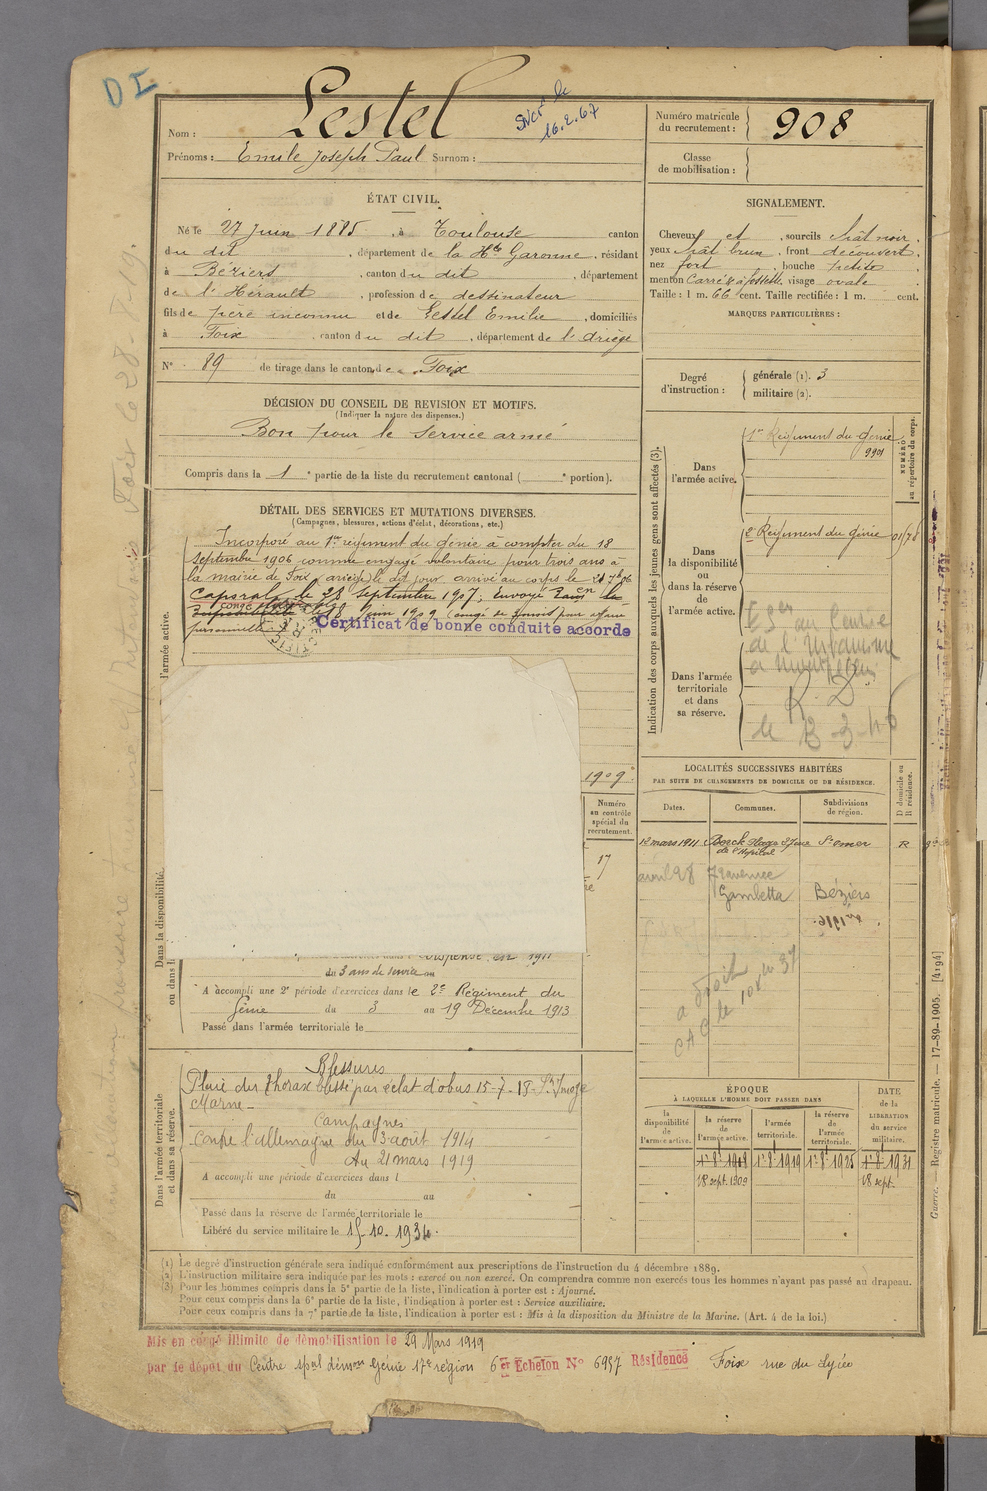 DI
Nom : Lestel
16.2.67
Prénoms : Emile Joseph Paul Surnom :
Numéro matricule
du recrutement : 908
Classe
de mobilisation :
ÉTAT CIVIL.
Né le 27 Juin 1885, à Toulouse canton
du dit, département de la Hte Garonne, résidant
à Béziers, canton du dit, département
de l'Hérault, profession de dessinateur
fils de père inconnu et de Lestel Emilie, domiciliés
à Foix, canton du dit, département de l'Ariège
N° 89 de tirage dans le canton de Foix
SIGNALEMENT.
Cheveux et, sourcils chât noir.
yeux chât brun, front découvert.
nez fort, bouche petite
menton Carré à fossette, visage ovale
Taille : 1 m. 66 cent. Taille rectifiée : 1 m. cent.
MARQUES PARTICULIÈRES :
Degré
d'instruction :
générale (1). 3
militaire (2).
DÉCISION DU CONSEIL DE REVISION ET MOTIFS.
(Indiquer la nature des dispenses.)
Bon pour le service armé
Compris dans la 1e partie de la liste du recrutement cantonal ( e portion).
DÉTAIL DES SERVICES ET MUTATIONS DIVERSES.
(Campagnes, blessures, actions d'éclat, décorations, etc.)
Incorporé au 1er régiment du génie à compter du 18
septembre 1906 comme engagé volontaire pour trois ans à
la mairie de Foix (ariège) le dit jour arrivé au corps le 21 7b 06
Caporal le 28 septembre 1907; Envoyé
Juin 1909 (congé de 3 mois pour affaire
personnelle)
Certificat de bonne conduite accordé
l'armée active.
1909
Numéro
au contrôle
spécial du
recrutement.
17
Dans la disponibilité
ou dans l
Dispensé en 1911
du 3 ans de service au
A accompli une 2e période d'exercices dans le 2e Régiment du
Génie du 3 au 19 Décembre 1913
Passé dans l'armée territoriale le
Indication des corps auxquels les jeunes gens sont affectés (3).
Dans
l'armée active.
1er Régiment du Génie
9901
NUMÉRO
au répertoire du corps.
Dans
la disponibilité
ou
dans la réserve
de
l'armée active.
2e Régiment du Génie
Dans l'armée
territoriale
et dans
sa réserve.
R D
LOCALITÉS SUCCESSIVES HABITÉES
PAR SUITE DE CHANGEMENTS DE DOMICILE OU DE RÉSIDENCE.
D domicile ou
R résidence.
Dates. Communes. Subdivisions
de région.
12 mars 1911 Berck Plage St omer R
de l'hopital
avril 28 7 Traverse
Gambetta Béziers
Dans l'armée territoriale
et dans sa réserve.
Blessures
Plaie du thorax blessé par éclat d'obus 15-7-18
Marne
Campagnes
Contre l'Allemagne du 3 août 1914
Au 21 mars 1919
A accompli une période d'exercices dans l
du au
Passé dans la réserve de l'armée territoriale le
Libéré du service militaire le 15-10-1934.
ÉPOQUE
À LAQUELLE L'HOMME DOIT PASSER DANS
la
disponibilité
de
l'armée active.
la réserve
de
l'armée active.
l'armée
territoriale.
la réserve
de
l'armée
territoriale.
DATE
de la
LIBÉRATION
du service
militaire.
1er 8 1908 1er 8 1919 1er 8 1925 1er 8 1931
18 sept. 1909 18 sept.
Guerre. — Registre matricule. — 17-89-1905. [4194]
(1) Le degré d'instruction générale sera indiqué conformément aux prescriptions de l'instruction du 4 décembre 1889.
(2) L'instruction militaire sera indiquée par les mots : exercé ou non exercé. On comprendra comme non exercés tous les hommes n'ayant pas passé au drapeau.
(3) Pour les hommes compris dans la 5e partie de la liste, l'indication à porter est : Ajourné.
Pour ceux compris dans la 6e partie de la liste, l'indication à porter est : Service auxiliaire.
Pour ceux compris dans la 7e partie de la liste, l'indication à porter est : Mis à la disposition du Ministre de la Marine. (Art. 4 de la loi.)
Mis en congé illimité de démobilisation le 29 Mars 1919
par le dépôt du Centre spal démon Génie 17e région 6er Echelon N° 6957 Résidence Foix rue du Lycée